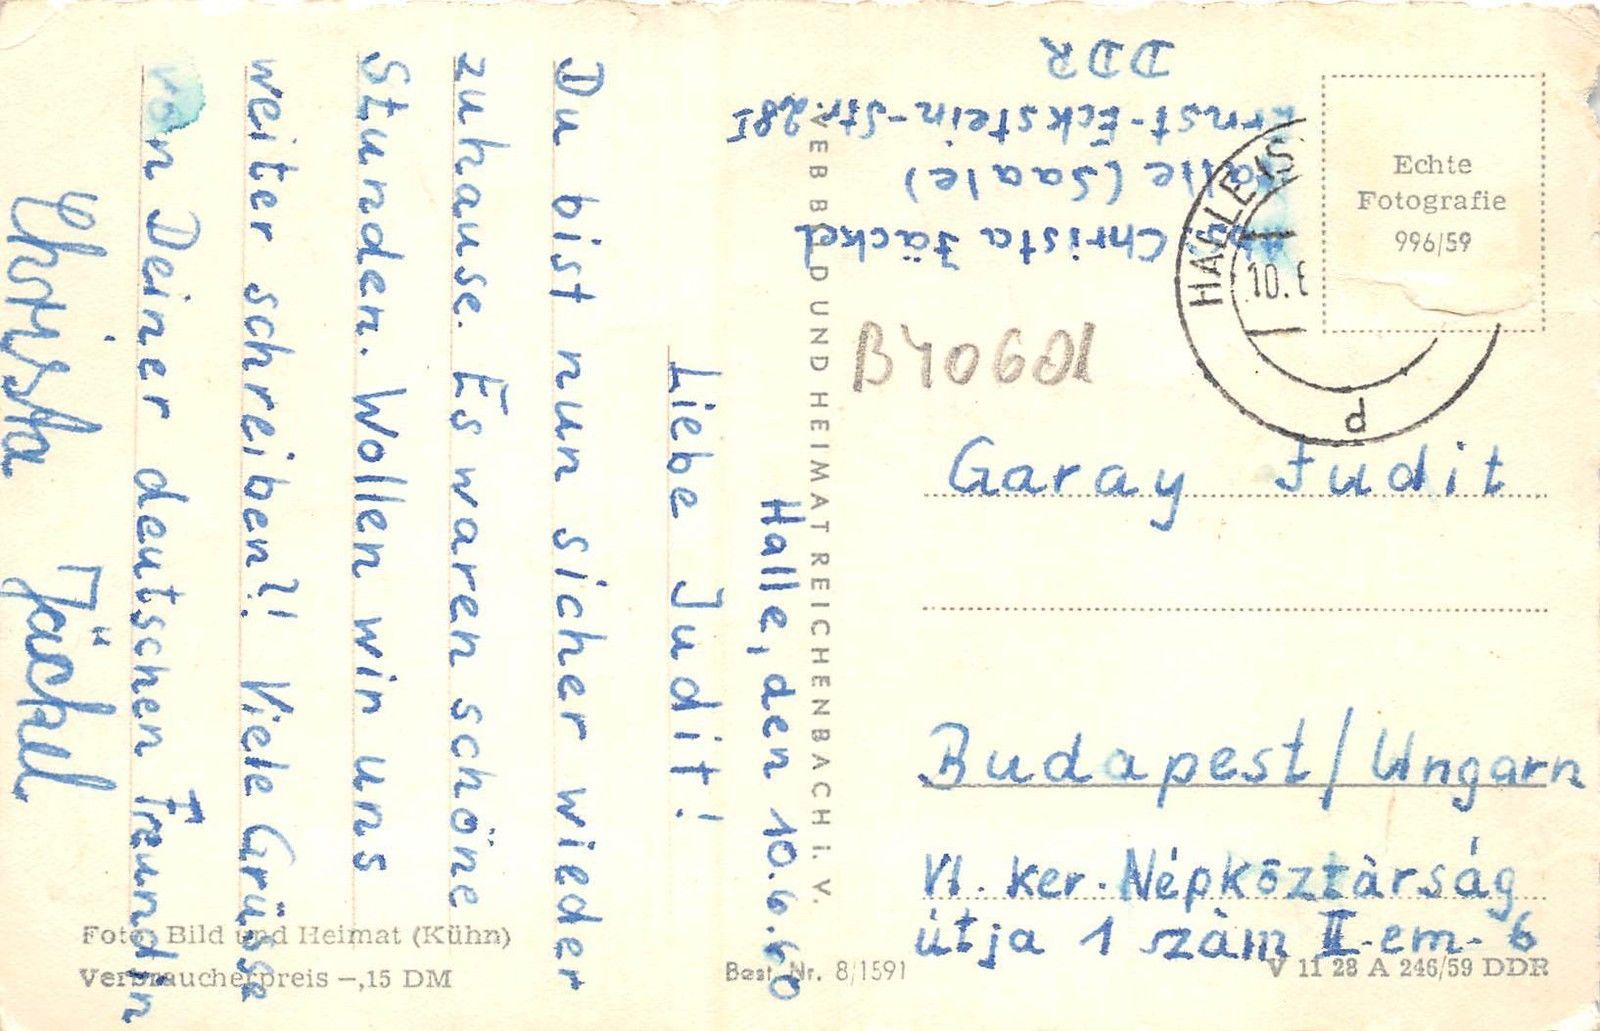 Halle, den 10.6.60
Liebe Judit!
Du bist nun sicher wieder
zuhause. Es waren schöne
Stunden. Wollen wir uns
weiter schreiben?! Viele Grüsse
von Deiner deutschen Freundin
Christa Jäckel
Christa Jäckel
Halle (Saale)
Ernst-Eckstein-Str. 28 I
DDR
VEB BILD UND HEIMAT REICHENBACH i. V.
Echte
Fotografie
996/59
HALLE (S
10.6
p
B40601
Garay Judit
Budapest/Ungarn
VI. ker. Népköztàrság
útja 1 szàm II-em-6
Foto: Bild und Heimat (Kühn)
Verbraucherpreis –,15 DM
Best. Nr. 8/1591
V 11 28 A 246/59 DDR